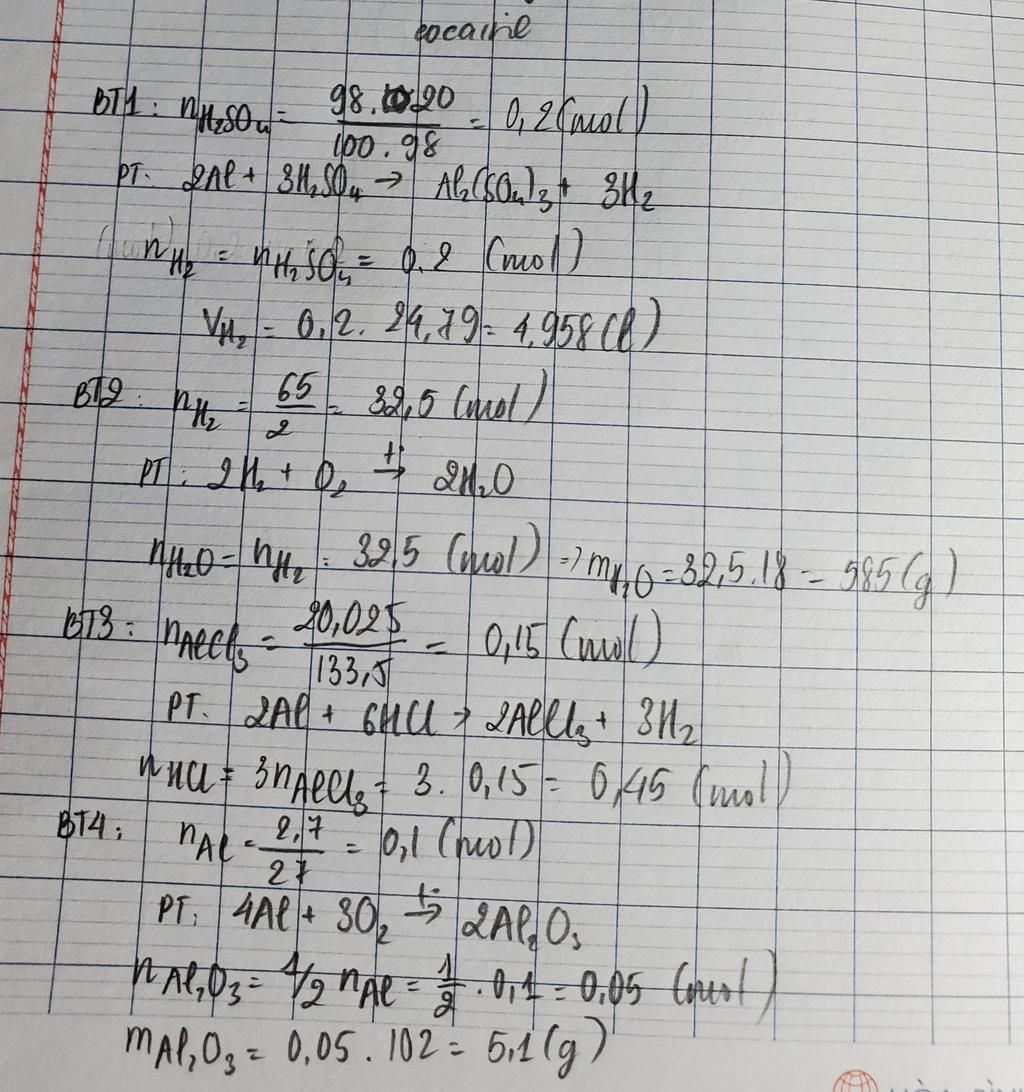 cocaine
BT1: nH₂SO₄ = 98.20/100.98 = 0,2 (mol)
PT: 2Al + 3H₂SO₄ → Al₂(SO₄)₃ + 3H₂
nH₂ = nH₂SO₄ = 0.2 (mol)
VH₂ = 0,2. 24,79 = 4,958 (l)
BT2: nH₂ = 65/2 = 32,5 (mol)
PT: 2H₂ + O₂ →(t°) 2H₂O
nH₂O = nH₂ = 32,5 (mol) => mH₂O = 32,5.18 = 585 (g)
BT3: nAlCl₃ = 20,025/133,5 = 0,15 (mol)
PT: 2Al + 6HCl → 2AlCl₃ + 3H₂
nHCl = 3nAlCl₃ = 3. 0,15 = 0,45 (mol)
BT4: nAl = 2,7/27 = 0,1 (mol)
PT: 4Al + 3O₂ →(t°) 2Al₂O₃
nAl₂O₃ = 1/2 nAl = 1/2 . 0,1 = 0,05 (mol)
mAl₂O₃ = 0,05 . 102 = 5,1 (g)